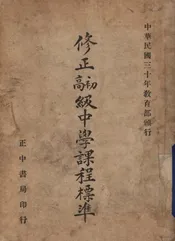 中華民國三十年教育部頒行
修正初高級中學課程標準
正中書局印行